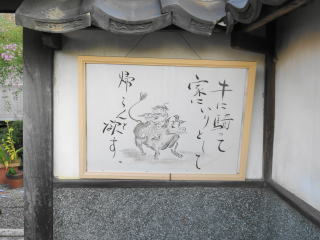 牛に騎って
家にいりとして
帰らんと欲す、